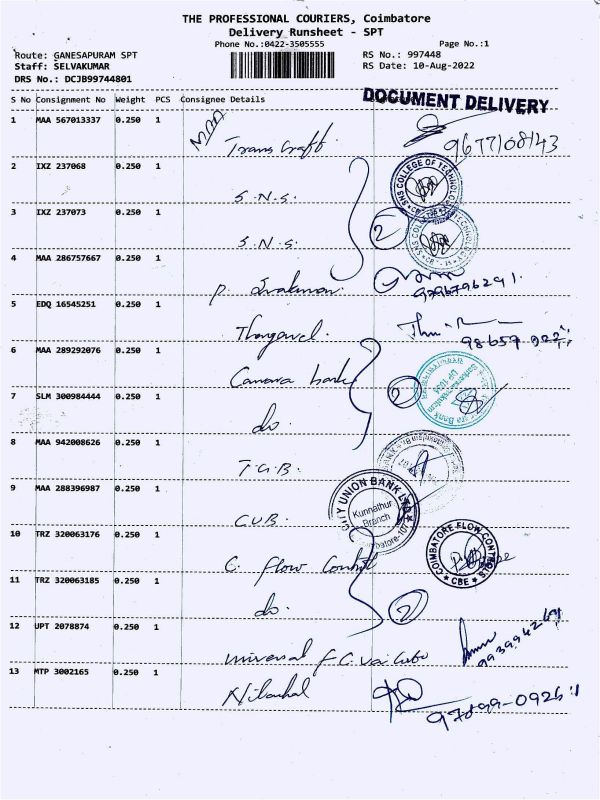 THE PROFESSIONAL COURIERS, Coimbatore
Delivery Runsheet - SPT
Phone No.:0422-3505555 Page No.:1
Route: GANESAPURAM SPT RS No.: 997448
Staff: SELVAKUMAR RS Date: 10-Aug-2022
DRS No.: DCJB99744801
S No Consignment No Weight PCS Consignee Details DOCUMENT DELIVERY
1 MAA 567013337 0.250 1 MAA
Trans Craft 9677108143
2 IXZ 237068 0.250 1 SNS COLLEGE OF TECHNOLOGY
S.N.S.
3 IXZ 237073 0.250 1 2
S.N.S.
4 MAA 286757667 0.250 1
P.
5 EDQ 16545251 0.250 1
Thangavel.
6 MAA 289292076 0.250 1
Canara bank
7 SLM 300984444 0.250 1 2
do.
8 MAA 942008626 0.250 1
T.G.B.
9 MAA 288396987 0.250 1 CITY UNION BANK LTD
Kunnathur
Branch
C.U.B.
10 TRZ 320063176 0.250 1 COIMBATORE FLOW CONTROLS
CBE
C. Flow Control
11 TRZ 320063185 0.250 1
do. 2
12 UPT 2078874 0.250 1
Universal
13 MTP 3002165 0.250 1